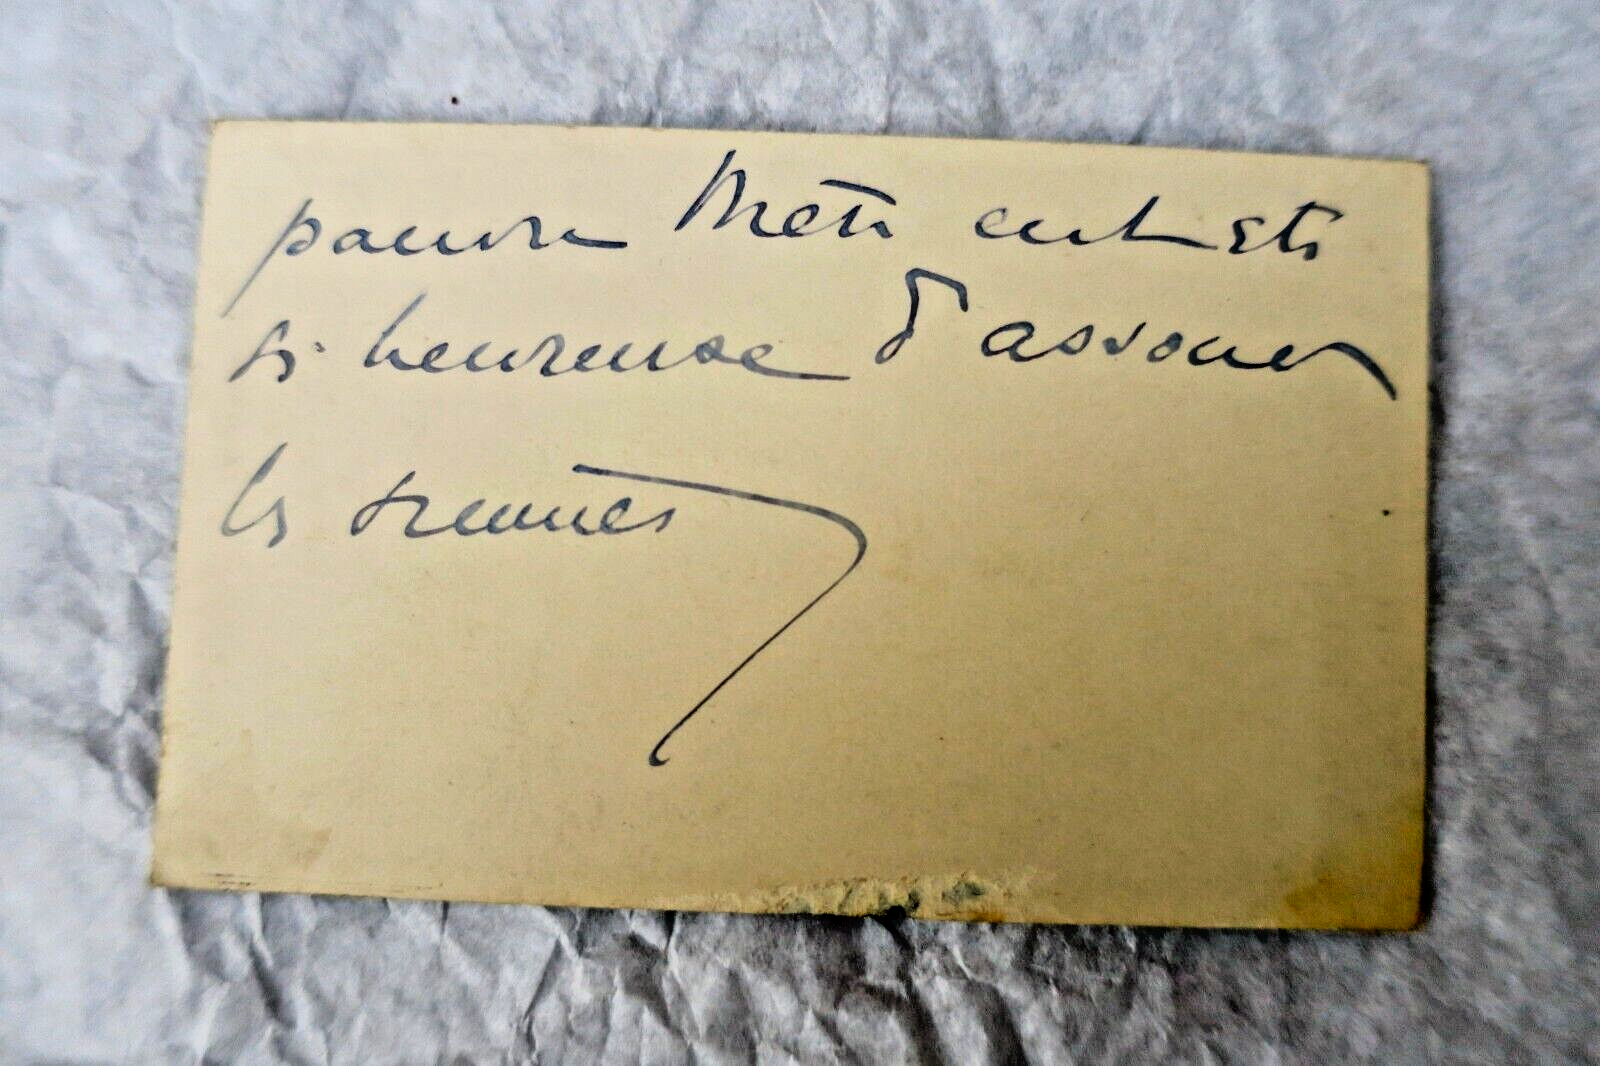 pauvre Mère eut été
si heureuse d'associer
les siennes